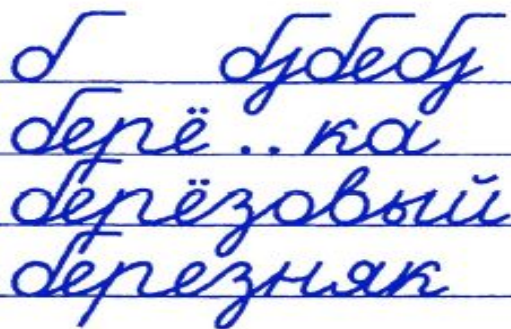 б будебу
берё..ка
берёзовый
березняк